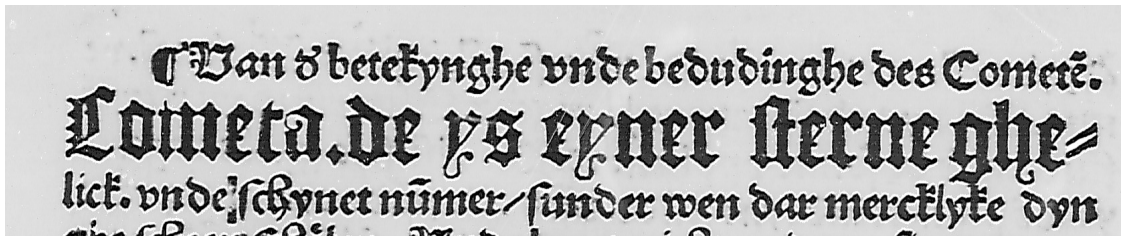 ¶ Van d' betekynghe vnde bedudinghe des Cometē.
Cometa. de ys eyner sterne ghe⸗
lick. vnde schynet nūmer/ sunder wen dar mercklyke dyn